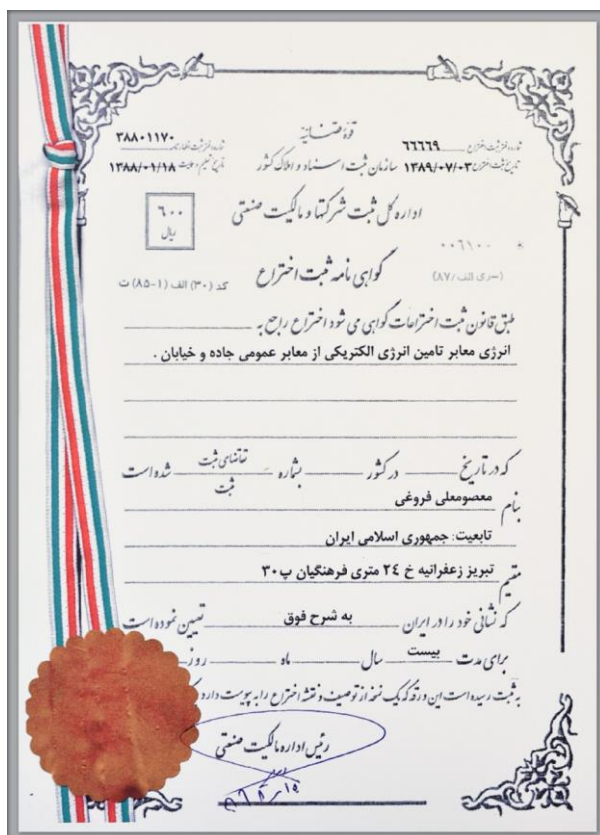 قوهٔ قضائیه
شماره دفتر ثبت اختراع ۶۶۶۶۹
شماره دفتر ثبت اظهارنامه ۳۸۸۰۱۱۷۰
تاریخ ثبت اختراع ۱۳۸۹/۰۷/۰۳
سازمان ثبت اسناد و املاک کشور
۱۳۸۸/۰۱/۱۸
اداره کل ثبت شرکتها و مالکیت صنعتی
۶۰۰
ریال
۰۰۶۱۰۰
(سری الف/۸۷)
گواهی نامه ثبت اختراع
کد (۳۰) الف (۱-۸۵) ت
طبق قانون ثبت اختراعات گواهی می شود اختراع راجع به
انرژی معابر تامین انرژی الکتریکی از معابر عمومی جاده و خیابان .
که در تاریخ در کشور بشماره تقاضای ثبت شده است
ثبت
بنام معصومعلی فروغی
تابعیت: جمهوری اسلامی ایران
مقیم تبریز زعفرانیه خ ۲٤ متری فرهنگیان پ۳۰
که نشانی خود را در ایران به شرح فوق تعیین نموده است
برای مدت بیست سال ماه روز
به ثبت رسیده است این ورقه که یک نسخه از توصیف و نقشه اختراع را به پیوست دارد
رئیس اداره مالکیت صنعتی